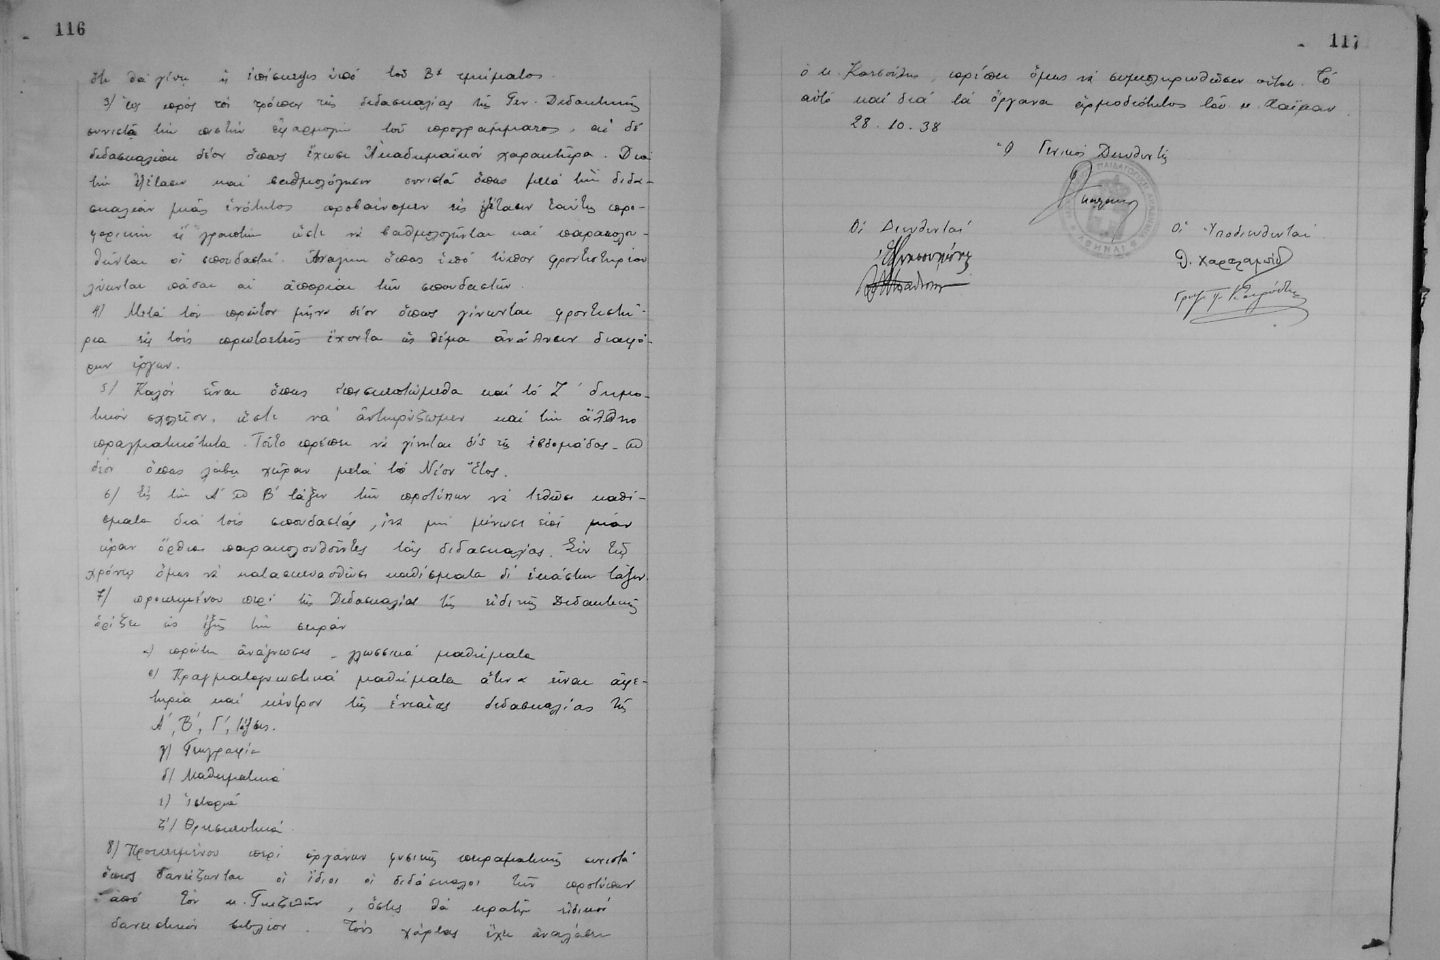 116
ὅτι θὰ γίνῃ ἡ ἐπίσκεψις ὑπὸ τοῦ Βʹ τμήματος.
3) Ὡς πρὸς τὸν τρόπον τῆς διδασκαλίας τῆς Γεν. Διδακτικῆς
συνιστᾷ τὴν πιστὴν ἐφαρμογὴν τοῦ προγράμματος, αἱ δὲ
διδασκαλίαι δέον ὅπως ἔχωσι Ἀκαδημαϊκὸν χαρακτῆρα. Διὰ
τὴν ἐξέτασιν καὶ βαθμολόγησιν συνιστᾷ ὅπως μετὰ τὴν διδα-
σκαλίαν μιᾶς ἑνότητος προβαίνομεν εἰς ἐξέτασιν ταύτης προ-
φορικὴν ἢ γραπτὴν ὥστε νὰ βαθμολογῆνται καὶ παρακολου-
θῆνται οἱ σπουδασταί. Ἀνάγκη ὅπως ὑπὸ τύπον φροντιστηρίου
λύωνται πᾶσαι αἱ ἀπορίαι τῶν σπουδαστῶν.
4) Μετὰ τὸν πρῶτον μῆνα δέον ὅπως γίνωνται φροντιστή-
ρια εἰς τοὺς πρωτοετεῖς ἔχοντα ὡς θέμα ἀνάλυσιν διαφό-
ρων ἔργων.
5) Καλὸν εἶναι ὅπως ἐπισκεπτώμεθα καὶ τὸ Ζʹ δημο-
τικὸν σχολεῖον, ὥστε νὰ ἀντικρύζωμεν καὶ τὴν ἄλλην
πραγματικότητα. Τοῦτο πρέπει νὰ γίνεται δὶς τῆς ἑβδομάδος
δέον ὅπως λάβῃ χώραν μετὰ τὸ Νέον Ἔτος.
6) Εἰς τὴν Αʹ Βʹ τάξιν τῶν προτύπων νὰ τεθῶσι καθί-
σματα διὰ τοὺς σπουδαστάς, ἵνα μὴ μένωσι ἐπὶ μίαν
ὥραν ὄρθιοι παρακολουθοῦντες τὰς διδασκαλίας. Σὺν τῷ
χρόνῳ ὅμως νὰ κατασκευασθῶσι καθίσματα δι' ἑκάστην τάξιν.
7) προκειμένου περὶ τῆς Διδασκαλίας τῆς εἰδικῆς Διδακτικῆς
ὁρίζει ὡς ἑξῆς τὴν σειρὰν
α) πρώτη ἀνάγνωσις - γλωσσικὰ μαθήματα
β) Πραγματογνωστικὰ μαθήματα ἅτινα εἶναι ἀφε-
τηρία καὶ κέντρον τῆς ἑνιαίας διδασκαλίας τῆς
Αʹ, Βʹ, Γʹ, τάξεως.
γ) Γεωγραφία
δ) Μαθηματικὰ
ε) Ἱστορία
ζ) Θρησκευτικά.
8) Προκειμένου περὶ ὀργάνων φυσικῆς πειραματικῆς συνιστᾷ
ὅπως δανείζωνται οἱ ἴδιοι οἱ διδάσκαλοι τῶν προτύπων
ἀπὸ τὸν κ. , ὅστις θὰ κρατῇ εἰδικὸν
δανειστικὸν βιβλίον. Τοὺς χάρτας ἔχει ἀναλάβει
117
ὁ κ. Κατσούλης, πρέπει ὅμως νὰ συμπληρωθῶσιν οὗτοι. Τὸ
αὐτὸ καὶ διὰ τὰ ὄργανα ἁρμοδιότητος τοῦ κ.
28.10.38
Ὁ Γενικὸς Διευθυντὴς
Οἱ Διευθυνταί
Οἱ Ὑποδιευθυνταί
Θ. Χαραλαμπίδ
ΑΘΗΝΑΙ